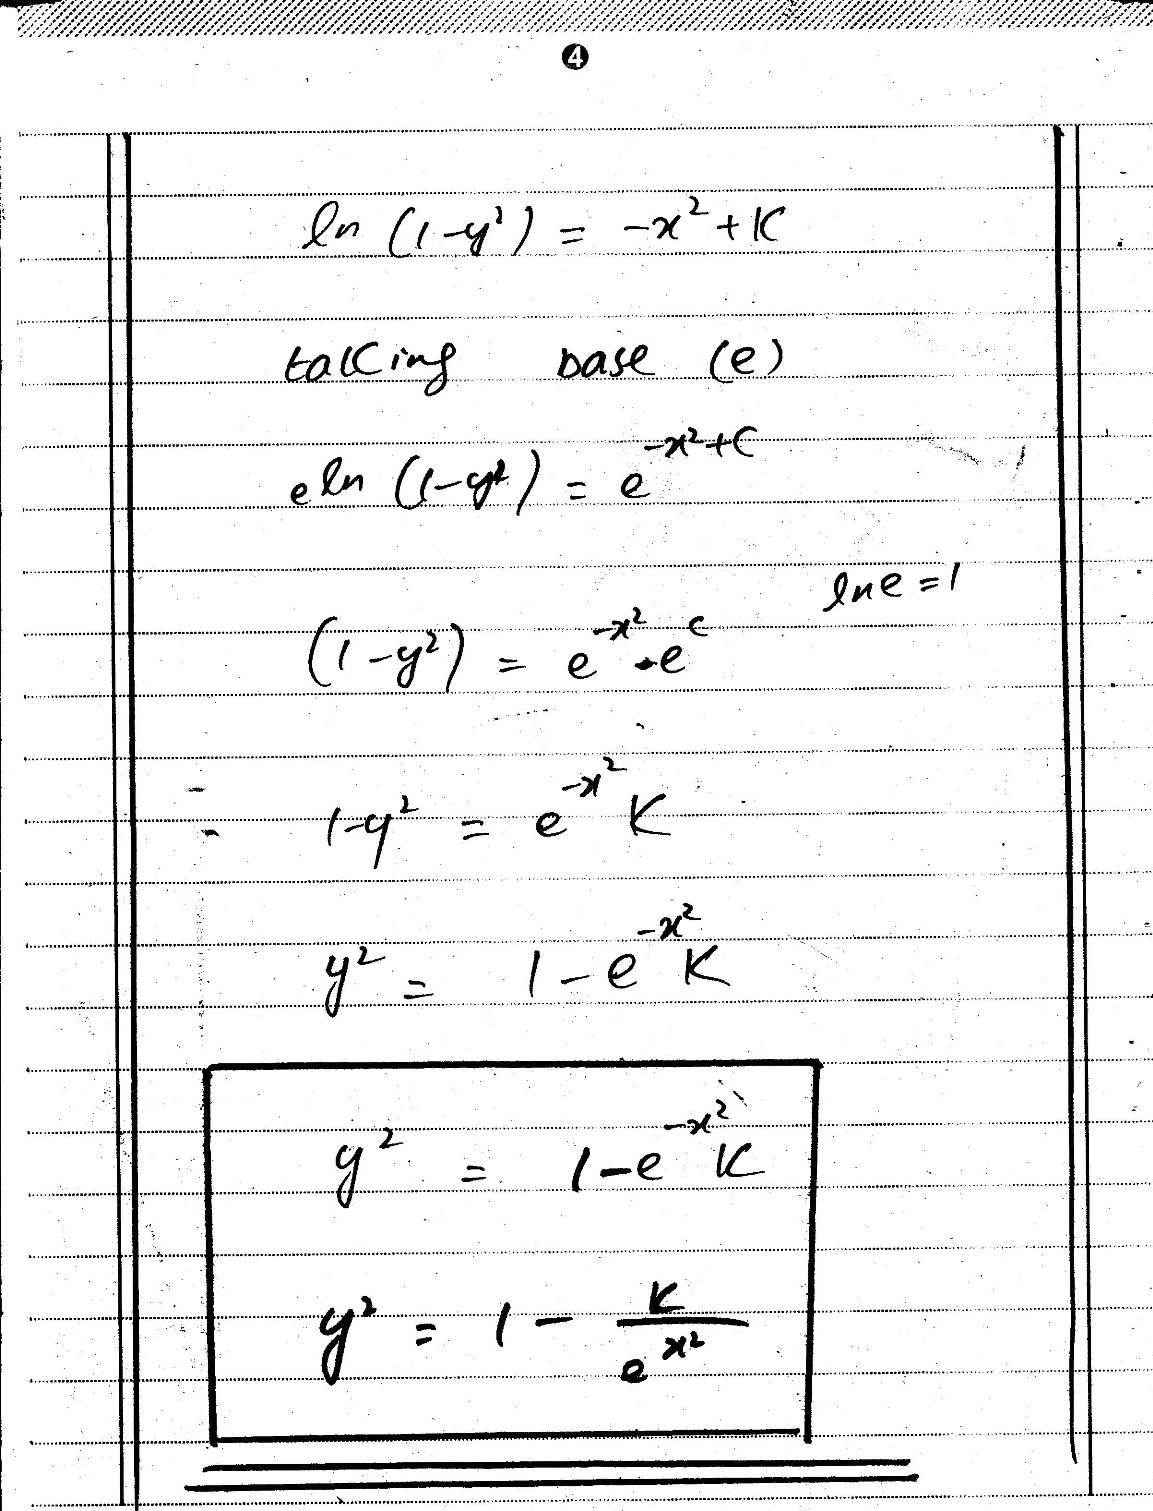 4
ln (1-y²) = -x² + K
taking base (e)
e ln (1-y²) = e^{-x²+C}
ln e = 1
(1-y²) = e^{-x²} . e^{c}
1-y² = e^{-x²} K
y² = 1 - e^{-x²} K
y² = 1 - e^{-x²} K
y² = 1 - K/e^{x²}